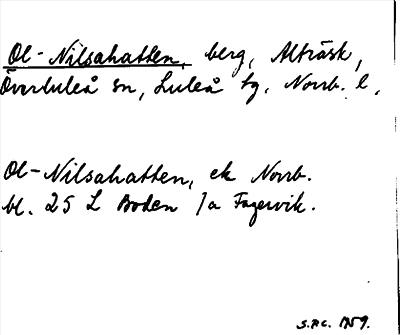 Ol-Nilsahatten, berg, Alträsk,
Överluleå sn, Luleå tg. Norrb. l.
Ol-Nilsahatten, ek Norrb.
bl. 25 L Boden /a Fagervik.
1959.